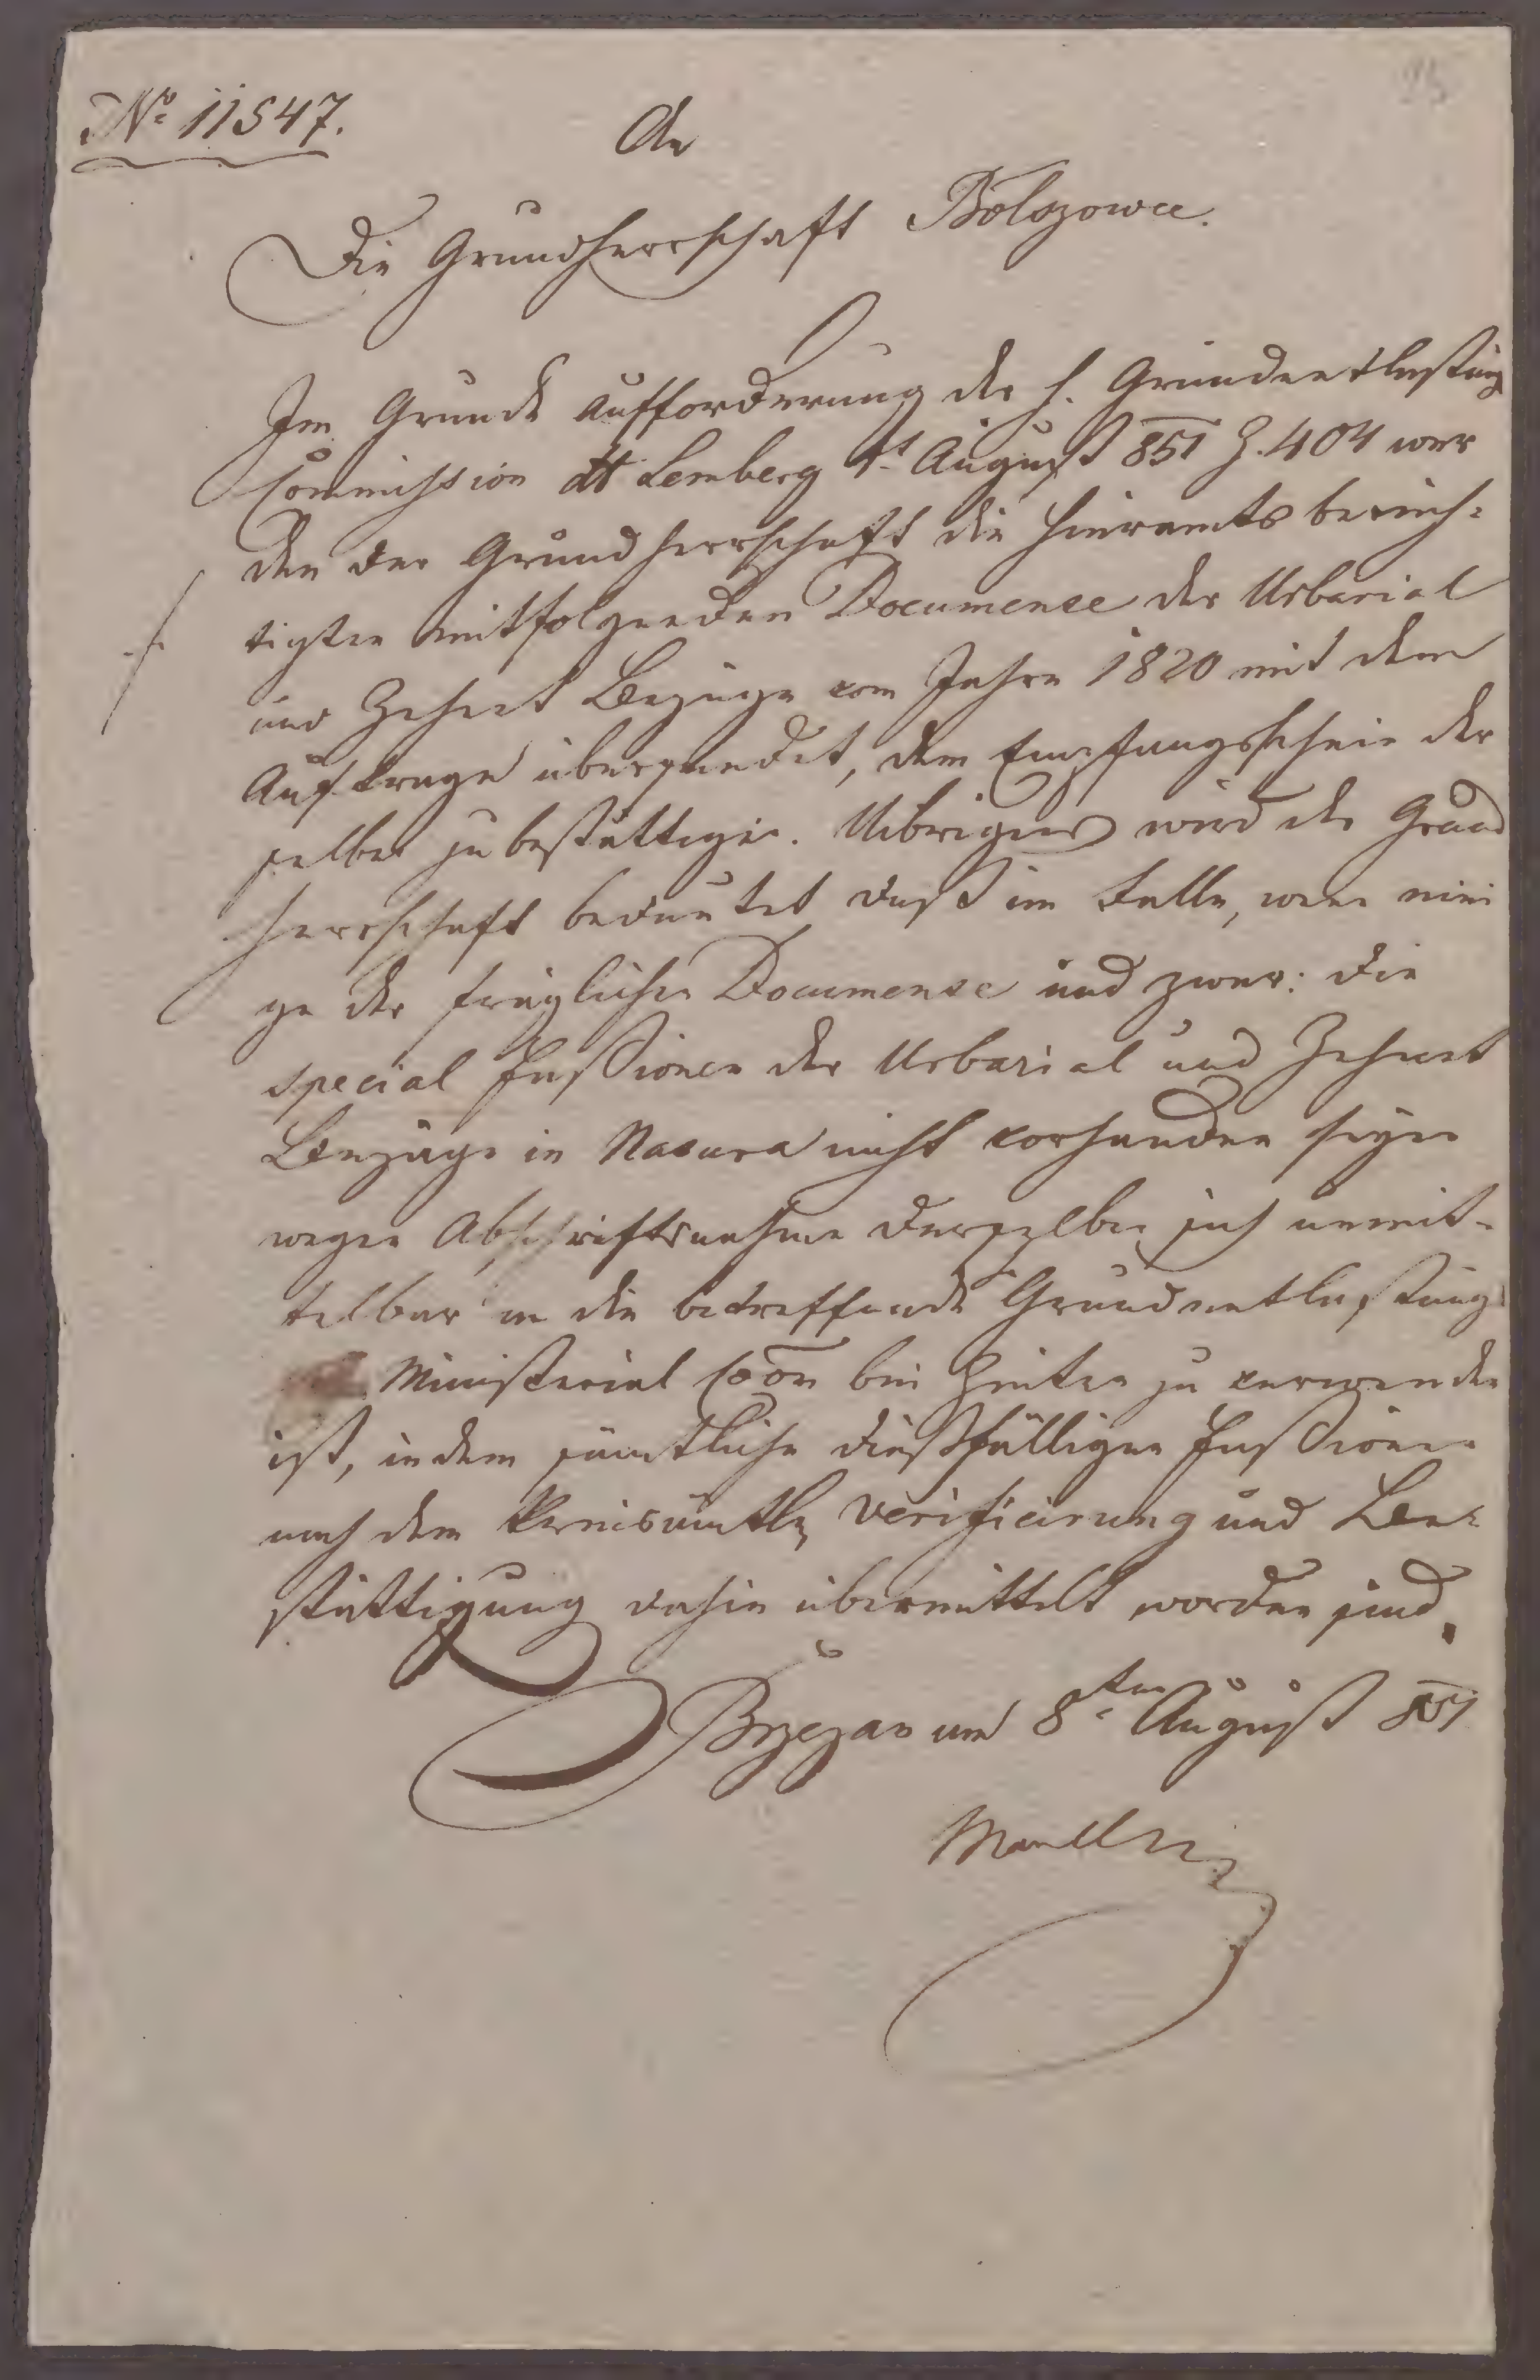 No 11547.
An
Die Grundherrschaft Bolszowce.
Im Grunde Aufforderung der h. Grundentlastung
Commission dt Lemberg 1t August 851 Z. 404 wer
den der Grundherrschaft die hieramts berich-
tigten mitfolgenden Documente der Urbarial
und Zehent Bezüge vom Jahre 1820 mit dem
Auftrage übersendet, den Empfangsschein der
selben zu bestättigen. Uibrigens wird der Grund
herrschaft bedeutet daß im Falle, wenn eini
ge der fraglichen Documente und zwar: die
special Fassionen der Urbarial und Zehent
Bezüge in Natura nicht vorhanden seyen
wegen Abschriftsnahme derselben sich unmit-
telbar an die betreffende Grundentlastungs
Ministerial Coon bei Zeiten zu verwenden
ist, indem sämtliche dießfälligen Fassionen
nach dem kreisämtlr Verificirung und Be-
stättigung dahin übermittelt worden sind.
Brzezan am 8ten August 851